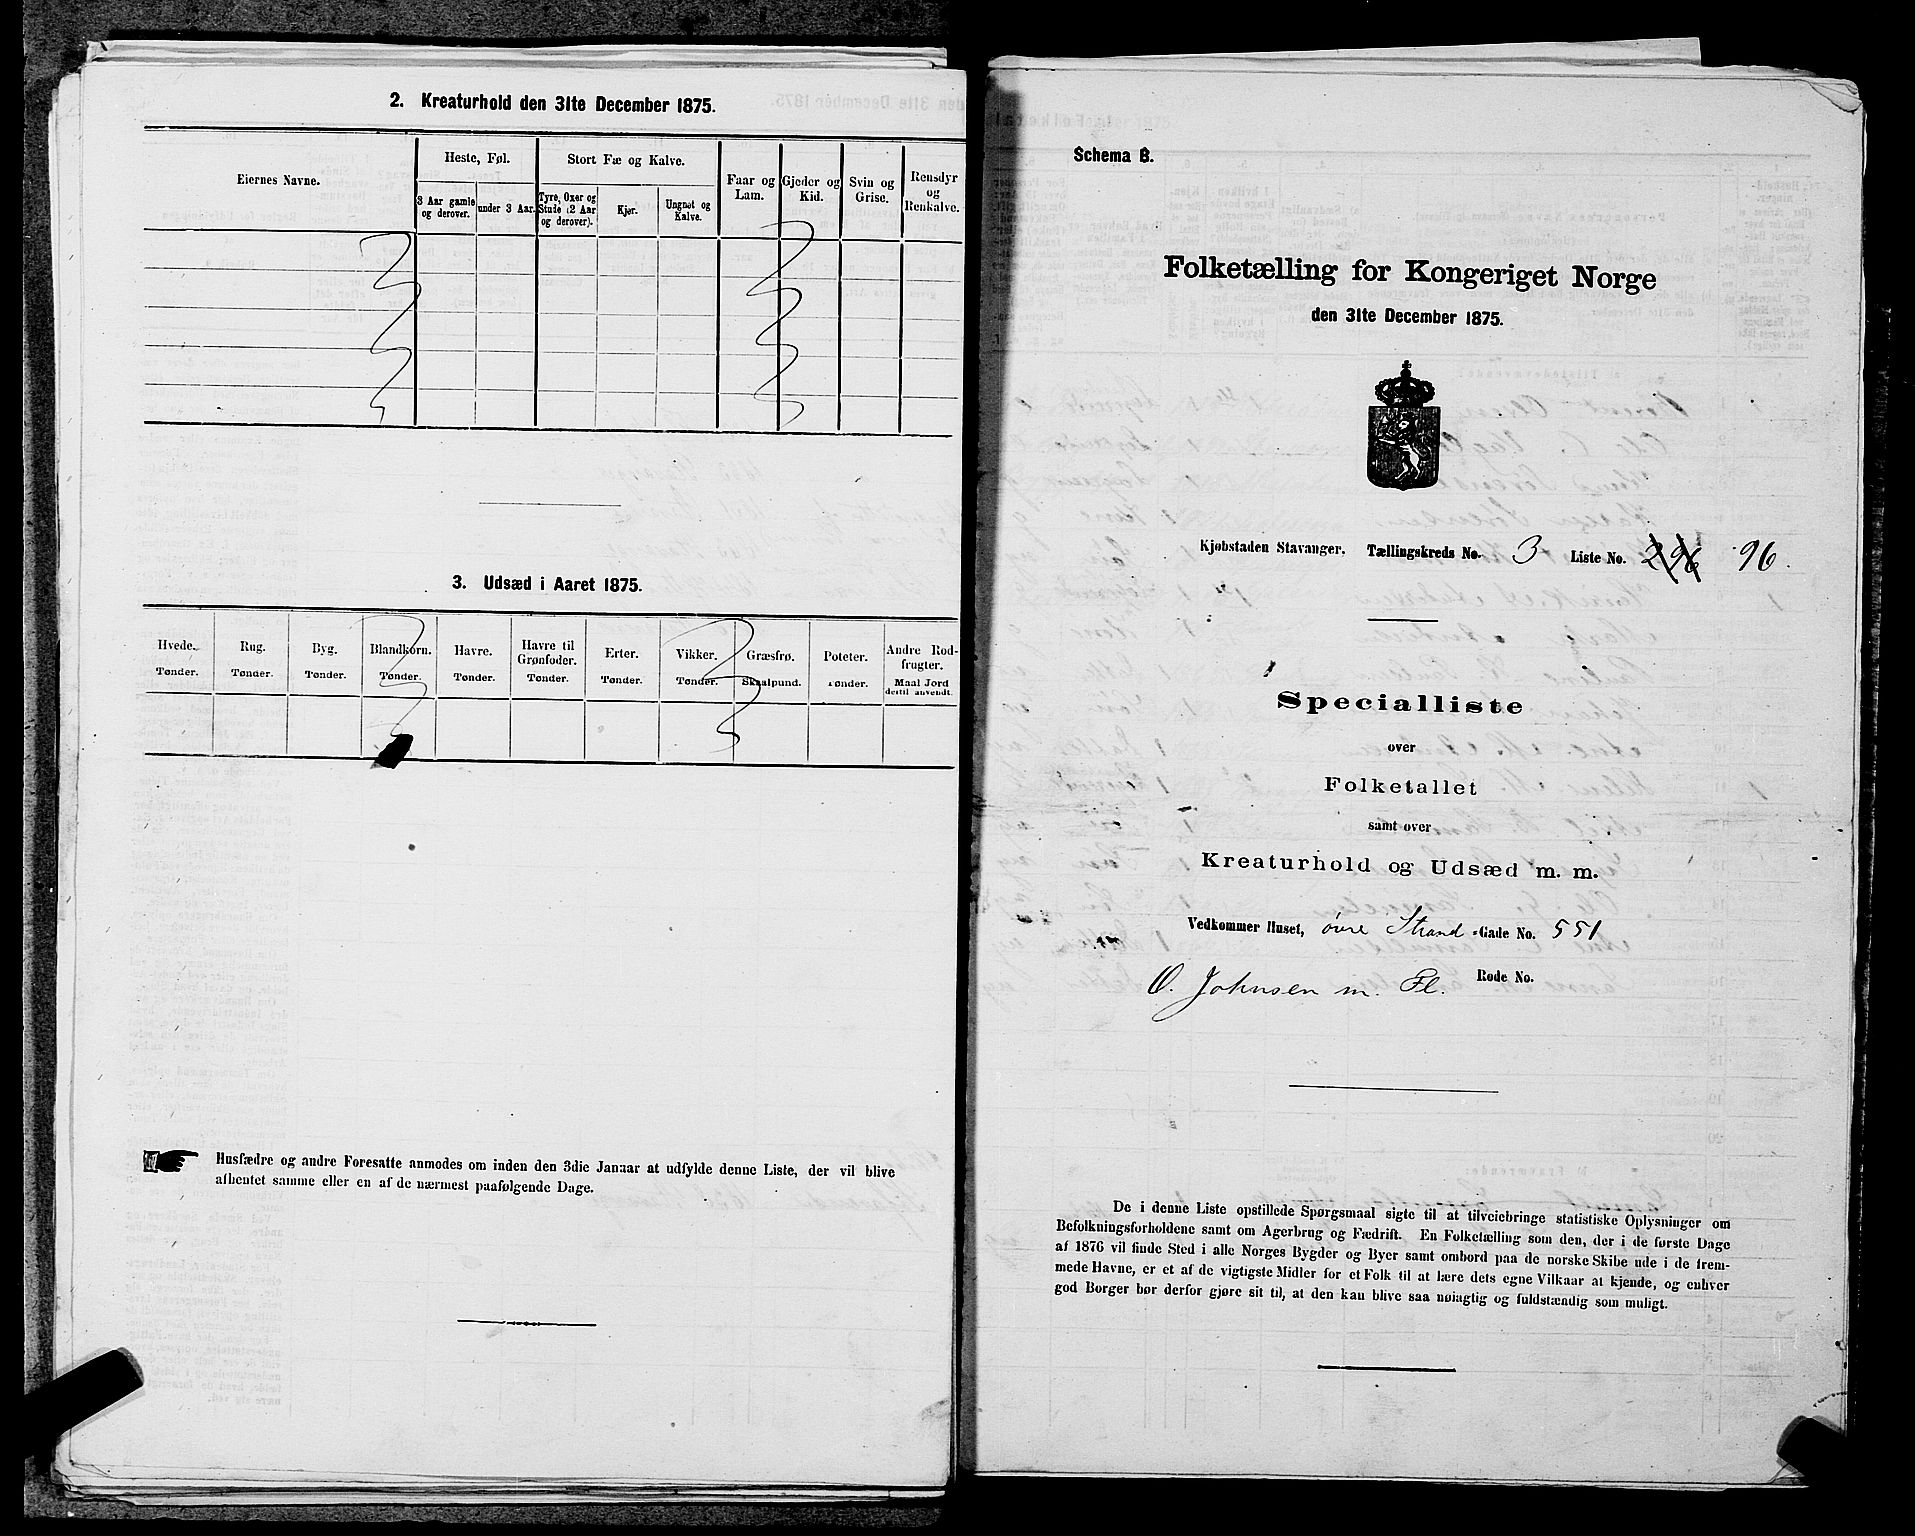 2. Kreaturhold den 31te December 1875.
Eiernes Navne.
Heste, Føl.
Stort Fæ og Kalve.
Faar og Lam.
Gjeder og Kid.
Svin og Grise.
Rensdyr og Renkalve.
3 Aar gamle og derover.
under 3 Aar.
Tyre, Oxer og Stude (2 Aar og derover).
Kjør.
Ungnøt og Kalve.
3. Udsæd i Aaret 1875.
Hvede. Rug. Byg. Blandkorn. Havre. Havre til Grønfoder. Erter. Vikker. Græsfrø. Poteter. Andre Rodfrugter.
Tønder. Tønder. Tønder. Tønder. Tønder. Tønder. Tønder. Tønder. Skaalpund. Tønder. Maal Jord dertil anvendt.
Husfædre og andre Foresatte anmodes om inden den 3die Januar at udfylde denne Liste, der vil blive
afhentet samme eller en af de nærmest paafølgende Dage.
Schema B.
Folketælling for Kongeriget Norge
den 31te December 1875.
Kjøbstaden Stavanger. Tællingskreds No. 3 Liste No. 296 96.
Specialliste
over
Folketallet
samt over
Kreaturhold og Udsæd m. m.
Vedkommer Huset, øvre Strand-Gade No. 551
O. Johnsen m. Fl. Rode No.
De i denne Liste opstillede Spørgsmaal sigte til at tilveiebringe statistiske Oplysninger om
Befolkningsforholdene samt om Agerbrug og Fædrift. En Folketælling som den, der i de første Dage
af 1876 vil finde Sted i alle Norges Bygder og Byer samt ombord paa de norske Skibe ude i de frem-
mede Havne, er et af de vigtigste Midler for et Folk til at lære dets egne Vilkaar at kjende, og enhver
god Borger bør derfor gjøre sit til, at den kan blive saa nøiagtig og fuldstændig som muligt.